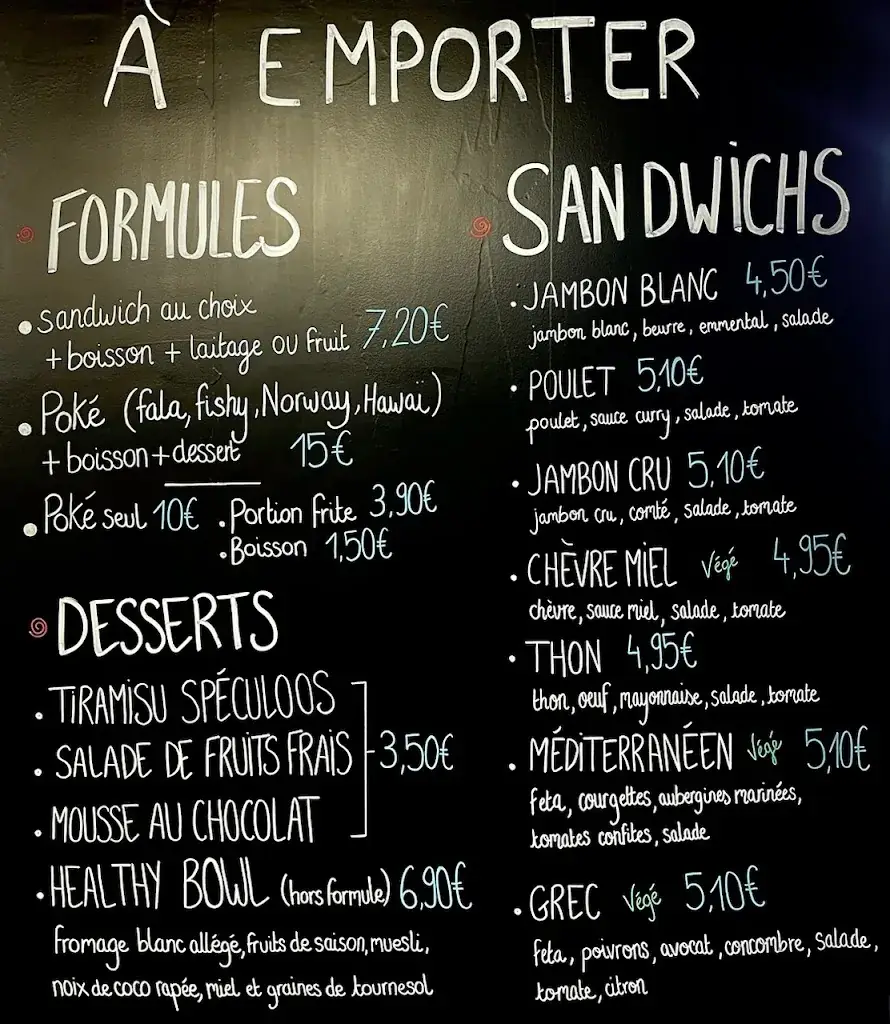 À EMPORTER
FORMULES
• sandwich au choix
+ boisson + laitage ou fruit 7,20€
• Poké (fala, fishy, Norway, Hawaï)
+ boisson + dessert 15€
• Poké seul 10€ • Portion frite 3,90€
• Boisson 1,50€
DESSERTS
• TIRAMISU SPÉCULOOS
• SALADE DE FRUITS FRAIS 3,50€
• MOUSSE AU CHOCOLAT
• HEALTHY BOWL (hors formule) 6,90€
fromage blanc allégé, fruits de saison, muesli,
noix de coco rapée, miel et graines de tournesol
SANDWICHS
• JAMBON BLANC 4,50€
jambon blanc, beurre, emmental, salade
• POULET 5,10€
poulet, sauce curry, salade, tomate
• JAMBON CRU 5,10€
jambon cru, comté, salade, tomate
• CHÈVRE MIEL Végé 4,95€
chèvre, sauce miel, salade, tomate
• THON 4,95€
thon, oeuf, mayonnaise, salade, tomate
• MÉDITERRANÉEN Végé 5,10€
feta, courgettes, aubergines marinées,
tomates confites, salade
• GREC Végé 5,10€
feta, poivrons, avocat, concombre, salade,
tomate, citron